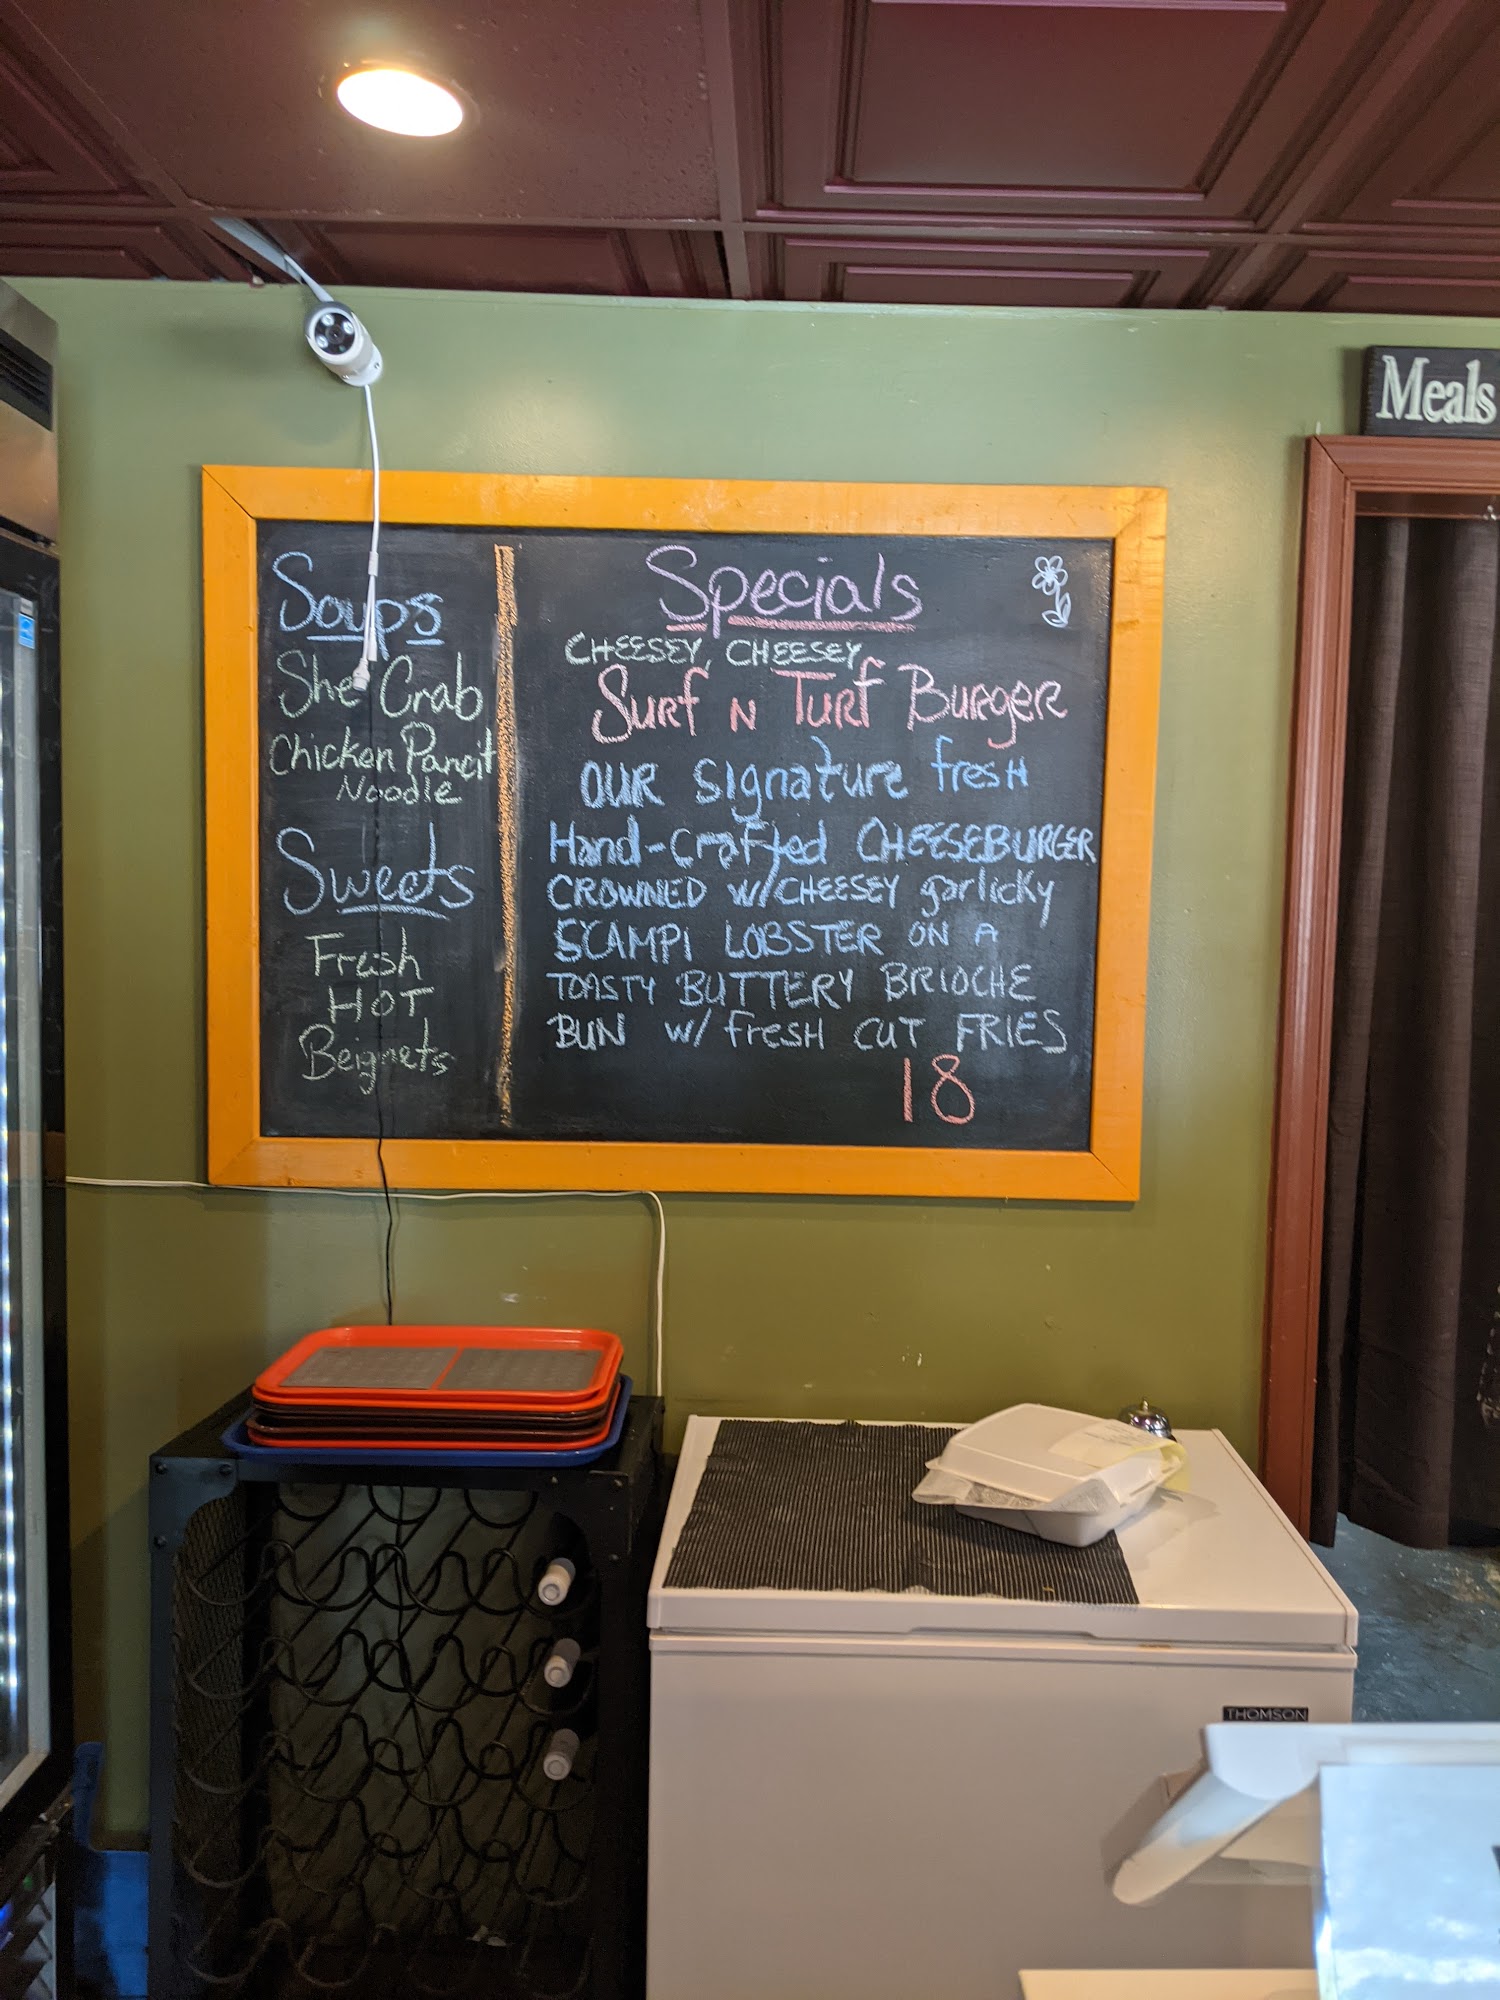 Meals
Soups
She Crab
Chicken Pancit
Noodle
Sweets
Fresh
HOT
Beignets
Specials
CHEESEY, CHEESEY
SURF N TURF BURGER
OUR Signature fresh
Hand-Crafted CHEESEBURGER
CROWNED W/CHEESEY garlicky
SCAMPI LOBSTER ON A
TOASTY BUTTERY BRIOCHE
BUN W/ fresh CUT FRIES
18
THOMSON